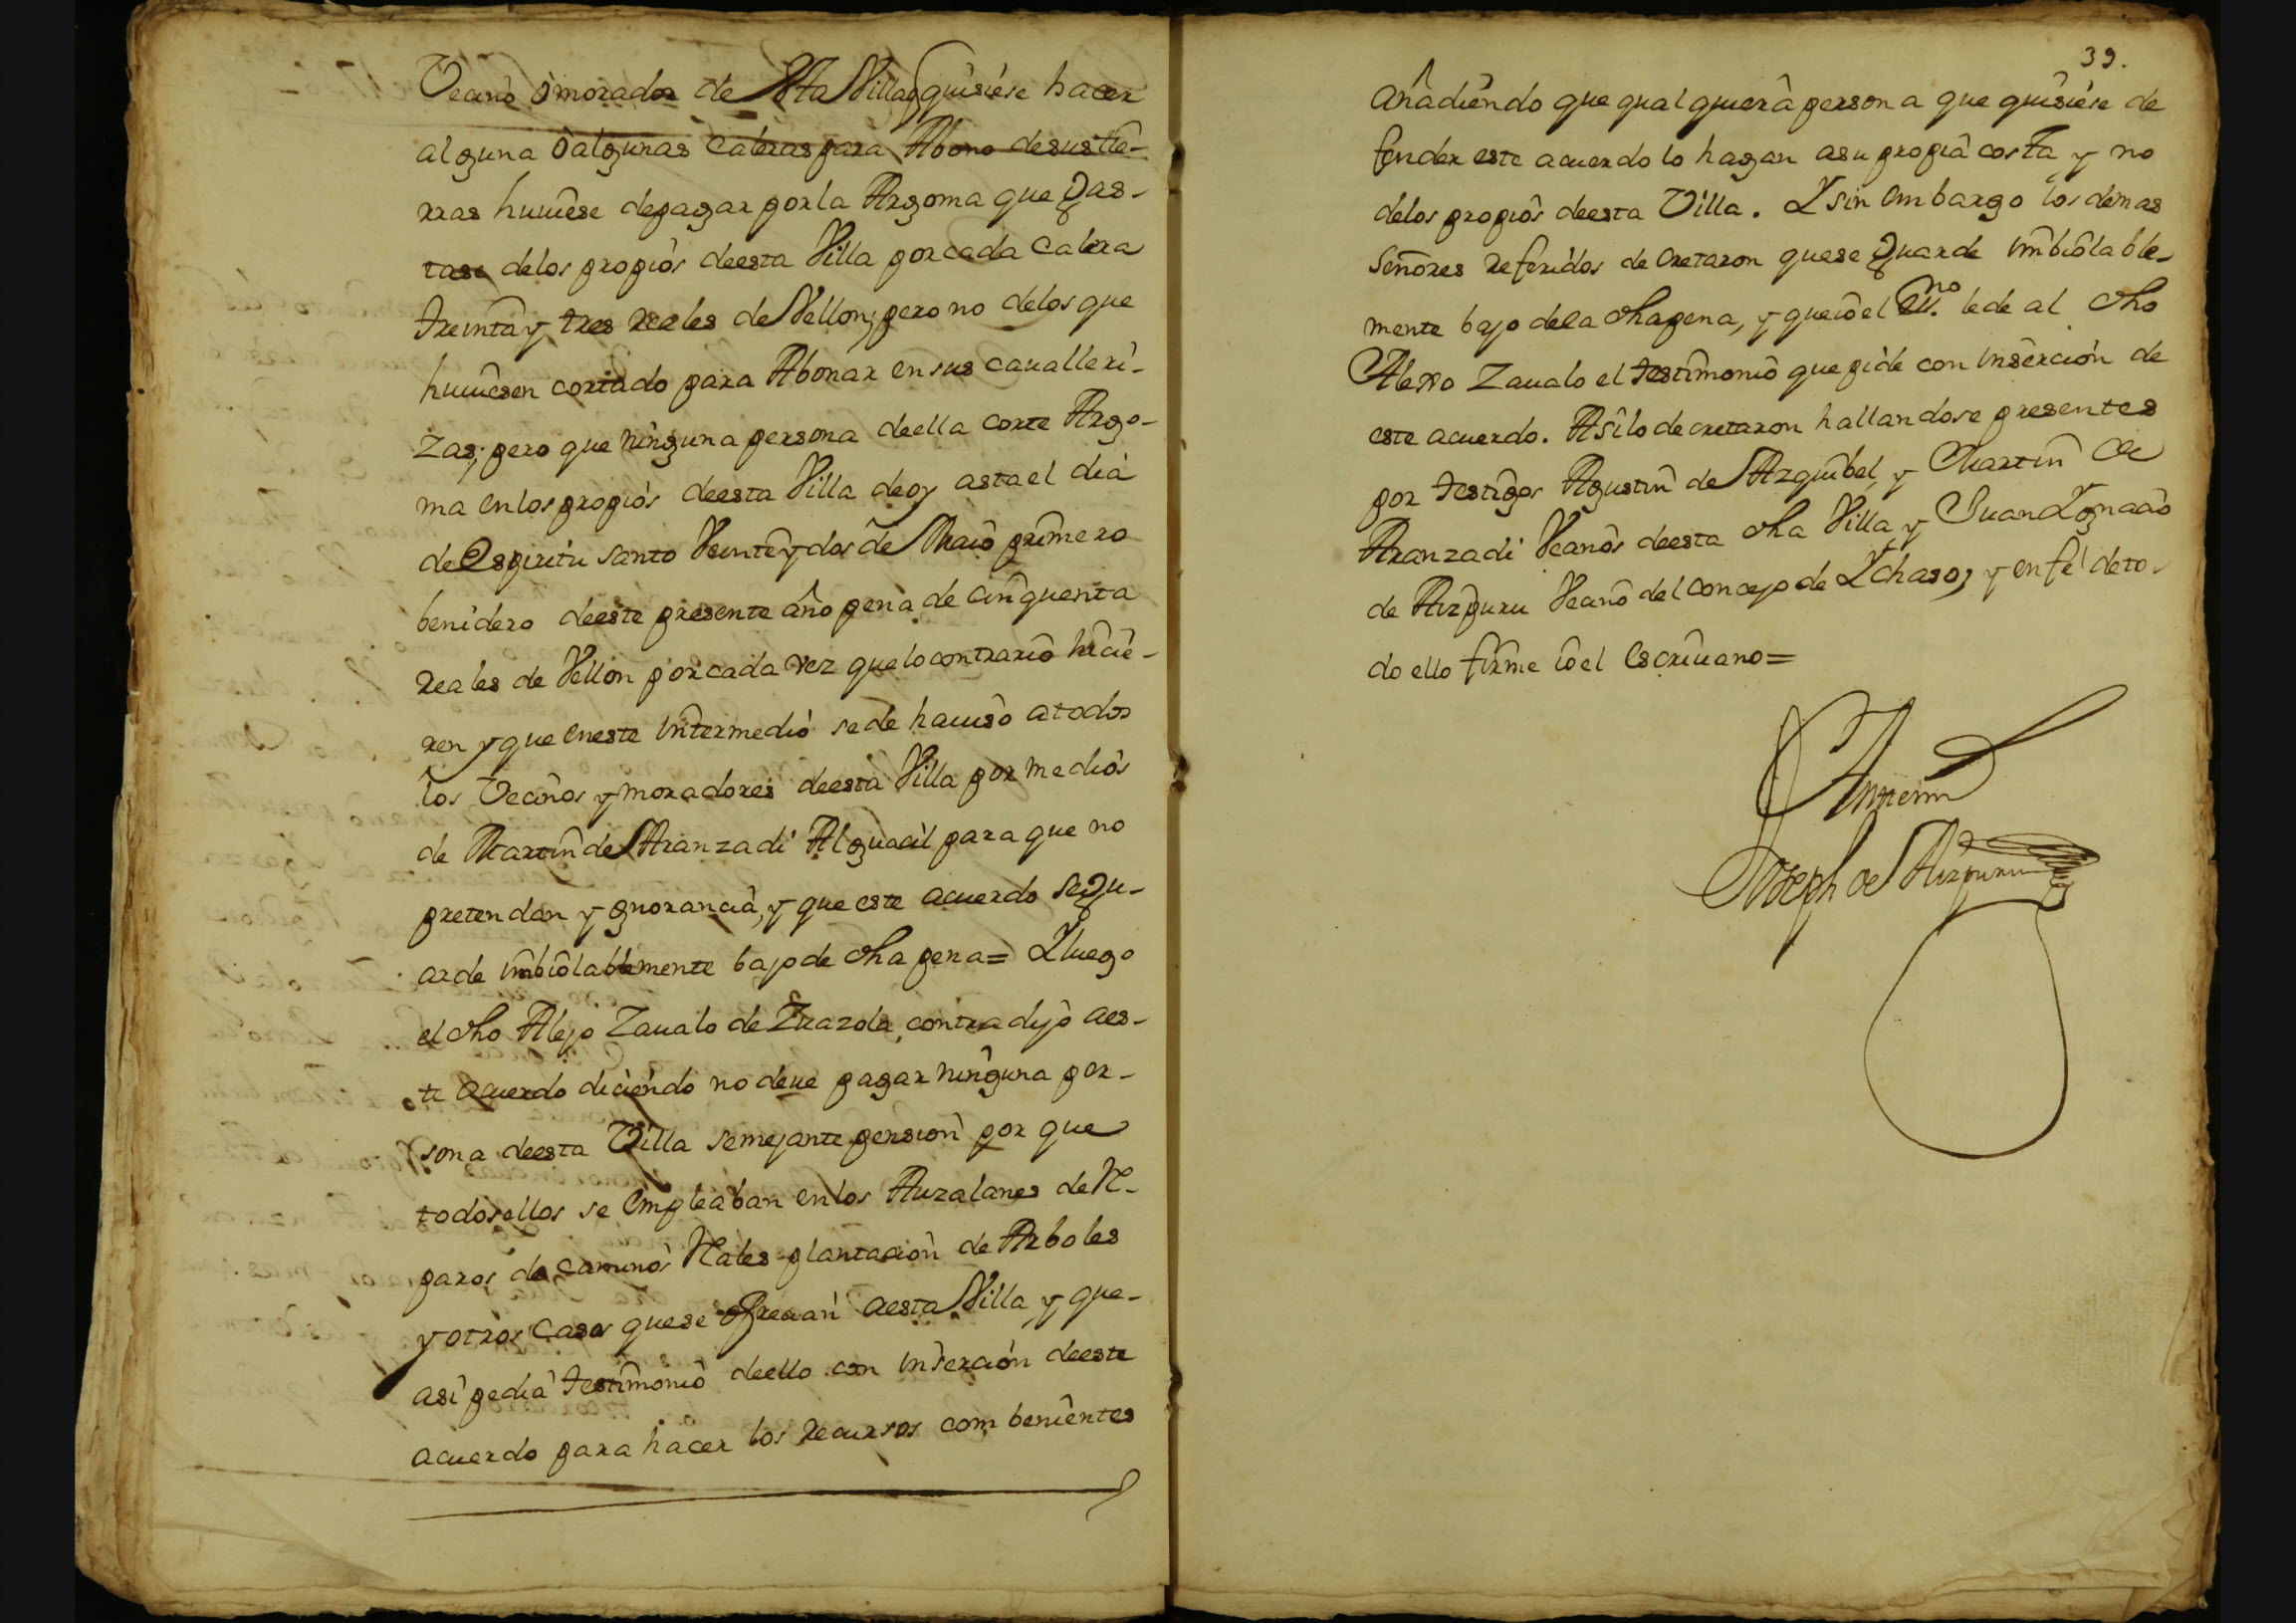 Vecino ò morador de esta Villa q̃ quisiése hacer
alguna ò algunas caleras para Abono de sus tie-
rras huuiese de pagar por la Argoma que gas-
tase de los propios de esta Villa por cada calera
treinta y tres reales de Vellon; pero no de los que
huuiesen cortado para Abonar en sus cavalleri-
zas; pero que ninguna persona de ella corte Argo-
ma en los propios de esta Villa de oy asta el dia
de Espiritu santo Veinte y dos de Maio primero
benidero de este presente año pena de cinquenta
reales de Vellon por cada vez que lo contrario hicie-
ren y que en este intermedio se de hauiso a todos
los Vecinos y moradores de esta Villa por medios
de Martin de Aranzadi Alguacil para que no
pretendan ygnorancia, y que este acuerdo se gu-
arde imbiolablemente bajo de dha pena= Y luego
el dho Alejo Zaualo de Zuazola contradijo a es-
te acuerdo diciendo no deue pagar ninguna per-
sona de esta Villa semejante pension por que
todos ellos se empleaban en los Auzalanes de Re-
paros de caminos Rales plantacion de Arboles
y otros casos que se ofrecian a esta Villa y que
asi pedia testimonio de ello con insercion de este
acuerdo para hacer los recursos combenientes
39.
añadiendo que qualquiera persona que quisiése de
fender este acuerdo lo hagan a su propia costa y no
de los propios de esta Villa. Y sin embargo los demas
señores referidos decretaron que se guarde imbiolable-
mente bajo de la dha pena, y que io el Ess.no le de al dho
Alexo Zaualo el testimonio que pide con insercion de
este acuerdo. Asi lo decretaron hallandose presentes
por testigos Agustin de Azguibel, y Martin de
Aranzadi Vecinos de esta dha Villa y Juan Ygnacio
de Aizpuru Vecino del concejo de Ychaso, y en fe de to-
do ello firme io el Escriuano=
Antemi
Joseph de Aizpuru